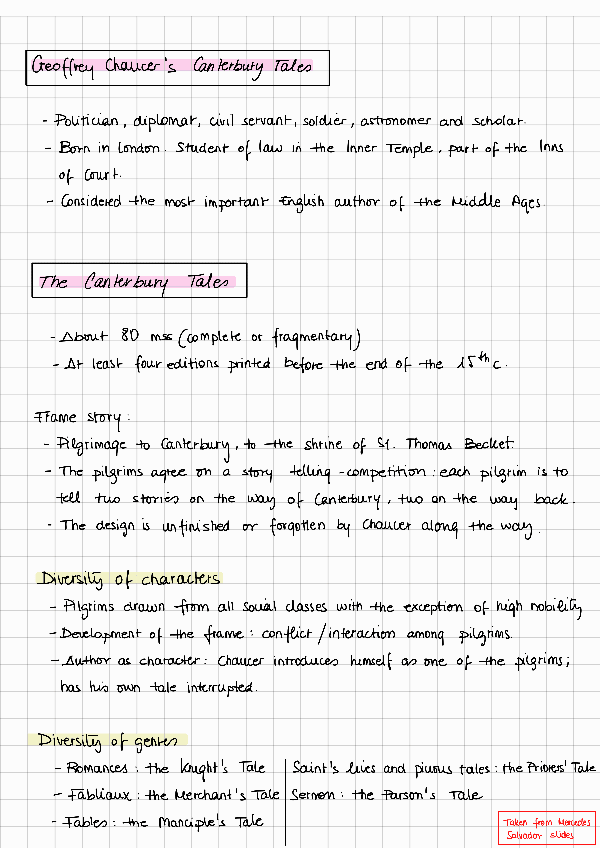 Geoffrey Chaucer's Canterbury Tales
- Politician, diplomat, civil servant, soldier, astronomer and scholar.
- Born in London. Student of law in the Inner Temple, part of the Inns
of Court.
- Considered the most important English author of the Middle Ages.
The Canterbury Tales
- About 80 mss (complete or fragmentary)
- At least four editions printed before the end of the 15th c.
Frame story:
- Pilgrimage to Canterbury, to the shrine of St. Thomas Becket.
- The pilgrims agree on a story telling-competition: each pilgrim is to
tell two stories on the way of Canterbury, two on the way back.
- The design is unfinished or forgotten by Chaucer along the way.
Diversity of characters
- Pilgrims drawn from all social classes with the exception of high nobility
- Development of the frame: conflict/interaction among pilgrims.
- Author as character: Chaucer introduces himself as one of the pilgrims;
has his own tale interrupted.
Diversity of genres
- Romances: the Knight's Tale
- Fabliaux: the Merchant's Tale
- Fables: the Manciple's Tale
Saint's lives and pious tales: the Priores' Tale
Sermon: the Parson's Tale
Taken from Mercedes
Salvador slides